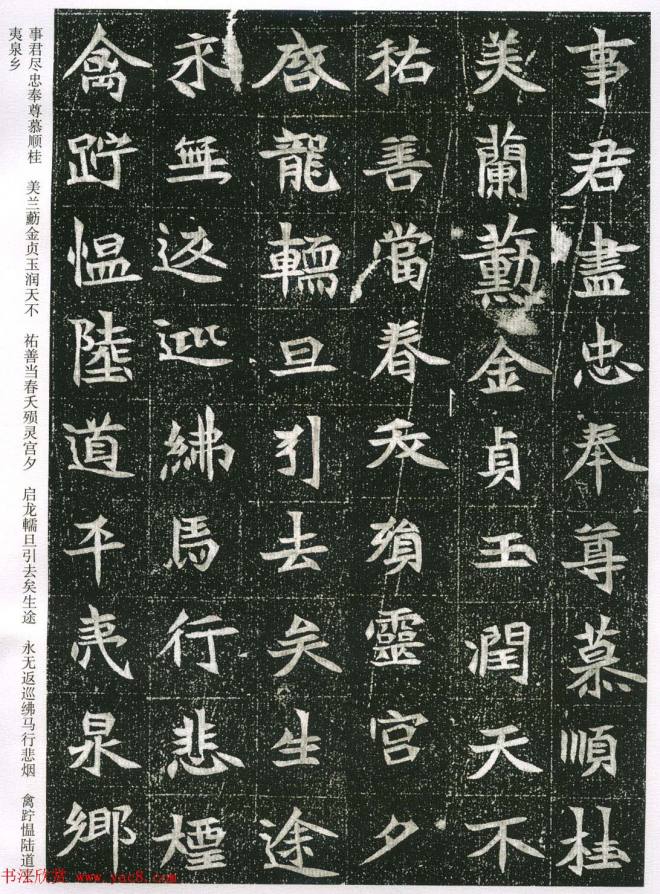 事君盡忠奉尊慕順桂
美蘭勳金貞玉潤天不
祐善當春夭殞靈宮夕
启龍轜旦引去矣生途
永無返巡紼馬行悲煙
禽跱愠陸道平夷泉鄉
事君尽忠奉尊慕顺桂 美兰勣金贞玉润天不 祐善当春夭殒灵宫夕 启龙轜旦引去矣生途 永无返巡绋马行悲烟 禽跱愠陆道平
夷泉乡
书法欣赏 www.yac8.com